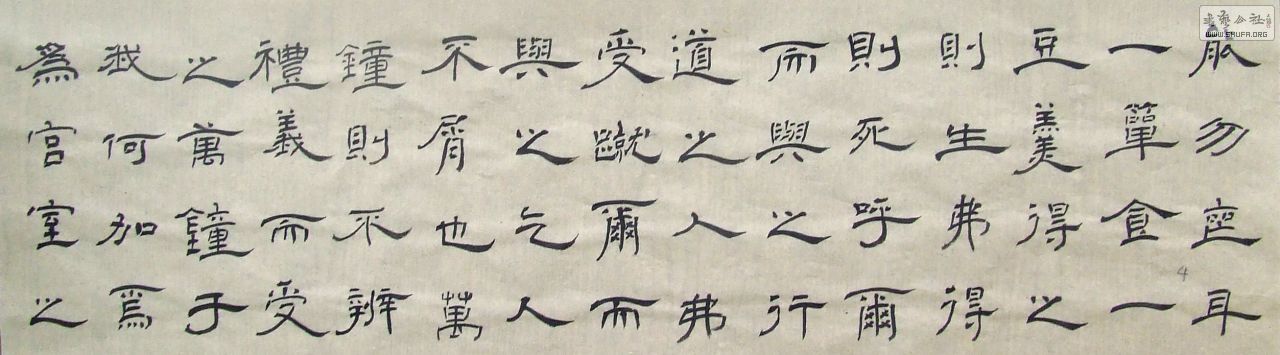 能勿喪耳
一簞食一
豆羹得之
則生弗得
則死呼爾
而與之行
道之人弗
受蹴爾而
與之乞人
不屑也萬
鐘則不辨
禮義而受
之萬鐘于
我何加焉
為宮室之
4
書藝公社
WWW.SHUFA.ORG